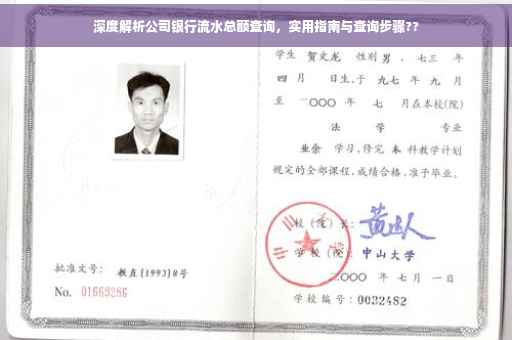 深度解析公司银行流水总额查询，实用指南与查询步骤??
学生 贺文龙 性别 男 ，七三 年
四 月 日生，于 九七 年 九 月
至 二〇〇〇 年 七 月在本校(院)
法 学 专业
业余 学习，修完 本 科教学计划
规定的全部课程，成绩合格，准予毕业。
校（院）长：
学校（院）：中山大学
二〇〇〇 年 七 月 一 日
学校编号：0032482
批准文号：教直(1993)8号
No. 01669286